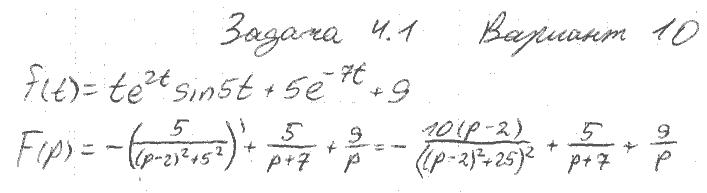 Задача 4.1 Вариант 10
f(t) = te^{2t} sin5t + 5e^{-7t} + 9
F(p) = -(5/((p-2)²+5²))' + 5/(p+7) + 9/p = -10(p-2)/((p-2)²+25)² + 5/(p+7) + 9/p